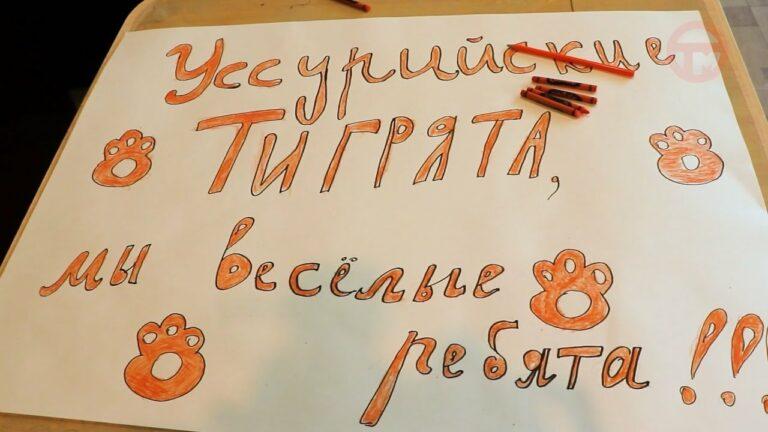 Уссурийские
ТИГРЯТА,
мы весёлые
ребята!!!